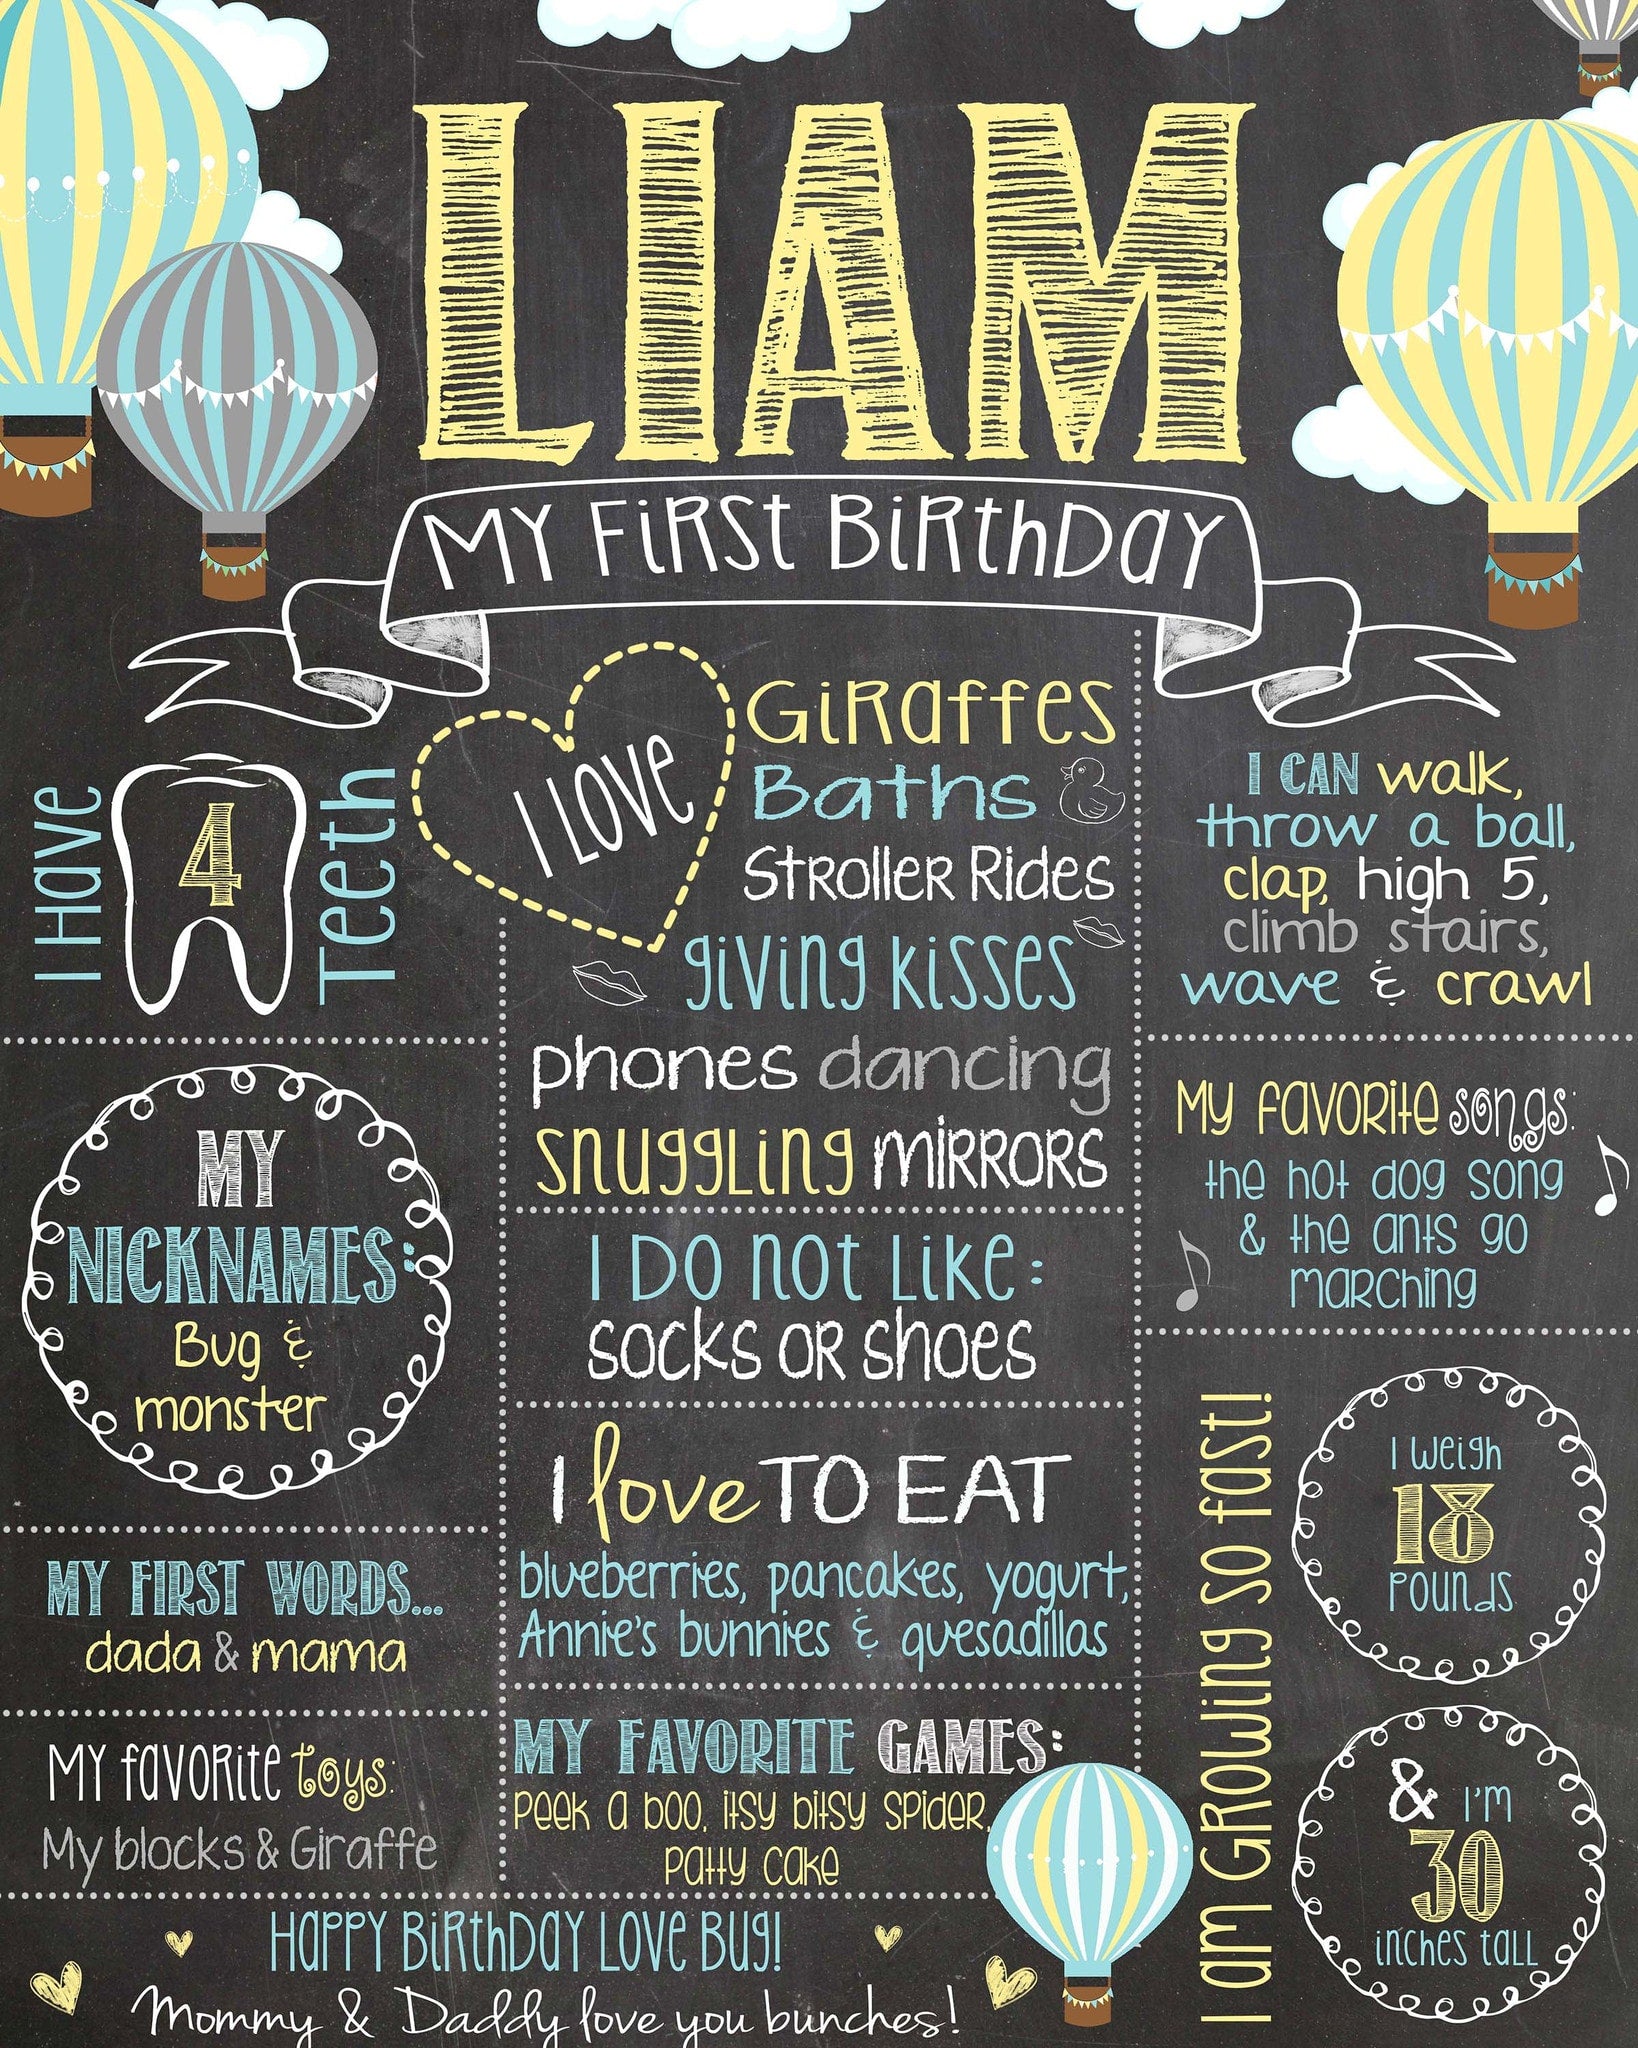 LIAM
MY FIRST BIRTHDAY
I Have
4
Teeth
I LOVE
GIRAFFES
Baths
STROLLER RIDES
giving kisses
phones dancing
snuggling MIRRORS
I CAN walk,
throw a ball,
clap, high 5,
climb stairs,
wave & crawl
MY NICKNAMES:
Bug &
monster
MY FAVORITE songs:
the hot dog song
& the ants go
marching
I DO NOT LIKE:
SOCKS OR SHOES
I love TO EAT
blueberries, pancakes, yogurt,
Annie's bunnies & quesadillas
MY FIRST WORDS...
dada & mama
MY FAVORITE toys:
My blocks & Giraffe
MY FAVORITE GAMES:
PEEK A BOO, itsy bitsy spider,
patty cake
I AM GROWING SO fast!
I weigh
18
POUNDS
& I'M
30
inches tall
HAPPY BIRTHDAY LOVE BUG!
Mommy & Daddy love you bunches!